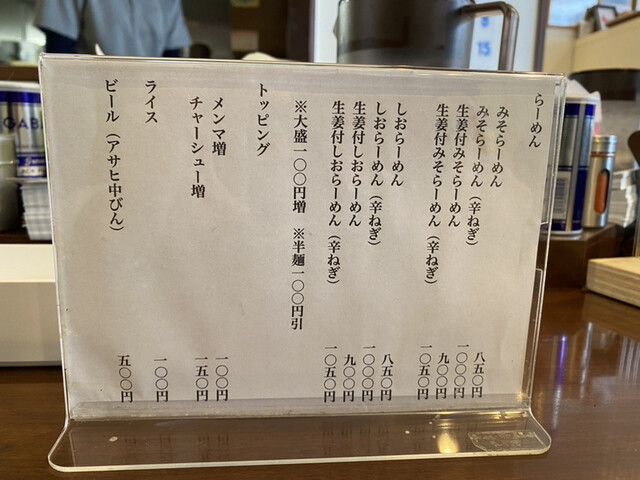 らーめん
みそらーめん 八五〇円
みそらーめん（辛ねぎ） 一〇〇〇円
生姜付みそらーめん 九〇〇円
生姜付みそらーめん（辛ねぎ） 一〇五〇円
しおらーめん 八五〇円
しおらーめん（辛ねぎ） 一〇〇〇円
生姜付しおらーめん 九〇〇円
生姜付しおらーめん（辛ねぎ） 一〇五〇円
※大盛一〇〇円増 ※半麺一〇〇円引
トッピング
メンマ増 一〇〇円
チャーシュー増 一五〇円
ライス 一〇〇円
ビール（アサヒ中びん） 五〇〇円
8
15
GABAN